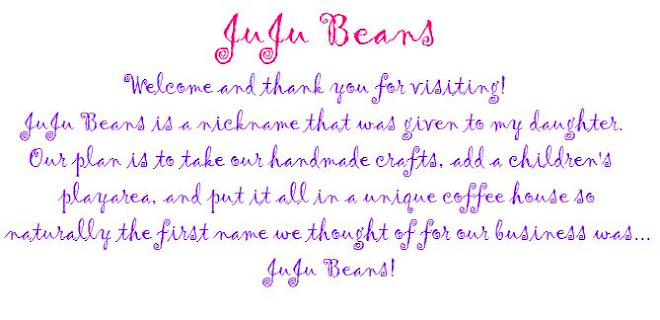 JuJu Beans
Welcome and thank you for visiting!
JuJu Beans is a nickname that was given to my daughter.
Our plan is to take our handmade crafts, add a children's
playarea, and put it all in a unique coffee house so
naturally the first name we thought of for our business was...
JuJu Beans!